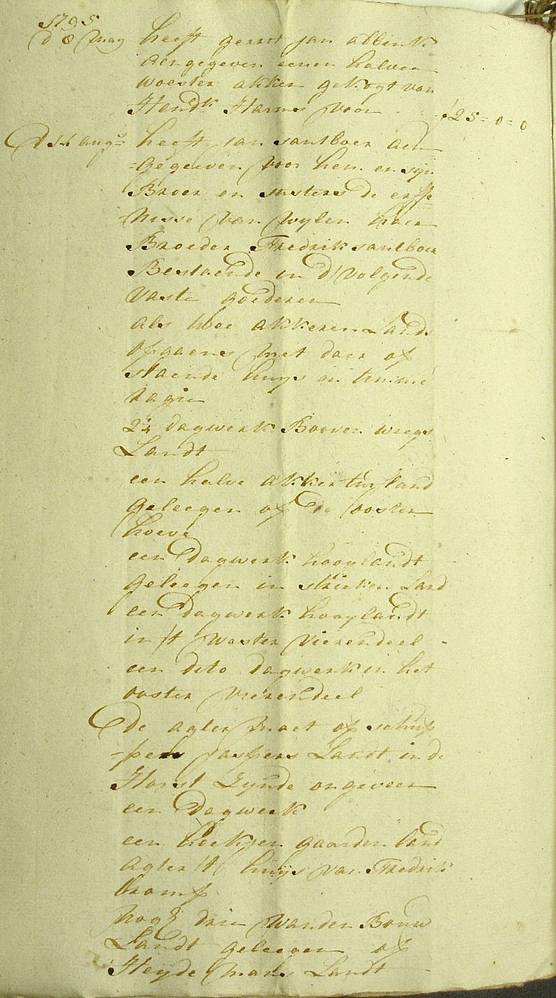 1795
d 8 may heeft gerrit jan abbink
aengegeven eenen halven
woesten akker gekogt van
Hend:k Harms voor f 25 = 0 = 0
D 14 aug:s heeft jan santboer aen
=gegeeven voor hem en sijn
Broer en susters de erffe
nisse van wylen haer
Broeder Fredrik santboer
Bestaende in d volgende
vaste goederen
als twee akkeren Lands
of gaens met daer op
staende huys en timme
ragie
2½ dagwerk Boeven weegs
Landt
een halve akker land
geleegen op de ooster
hoeve
een Dagwerk hooylandt
geleegen in Land
een dagwerk hooylandt
in 't wester vierendeel
een dito dagwerk in het
ooster vierendeel
De agter maet of schip
=pers jaspers Landt in de
Horst Eynde ongeveer
een Dagwerk
een hoekjen gaarden land
agter 't huys van Fredrik
nog drie Wanden Bouw
Landt geleegen op
Heyde mans Landt